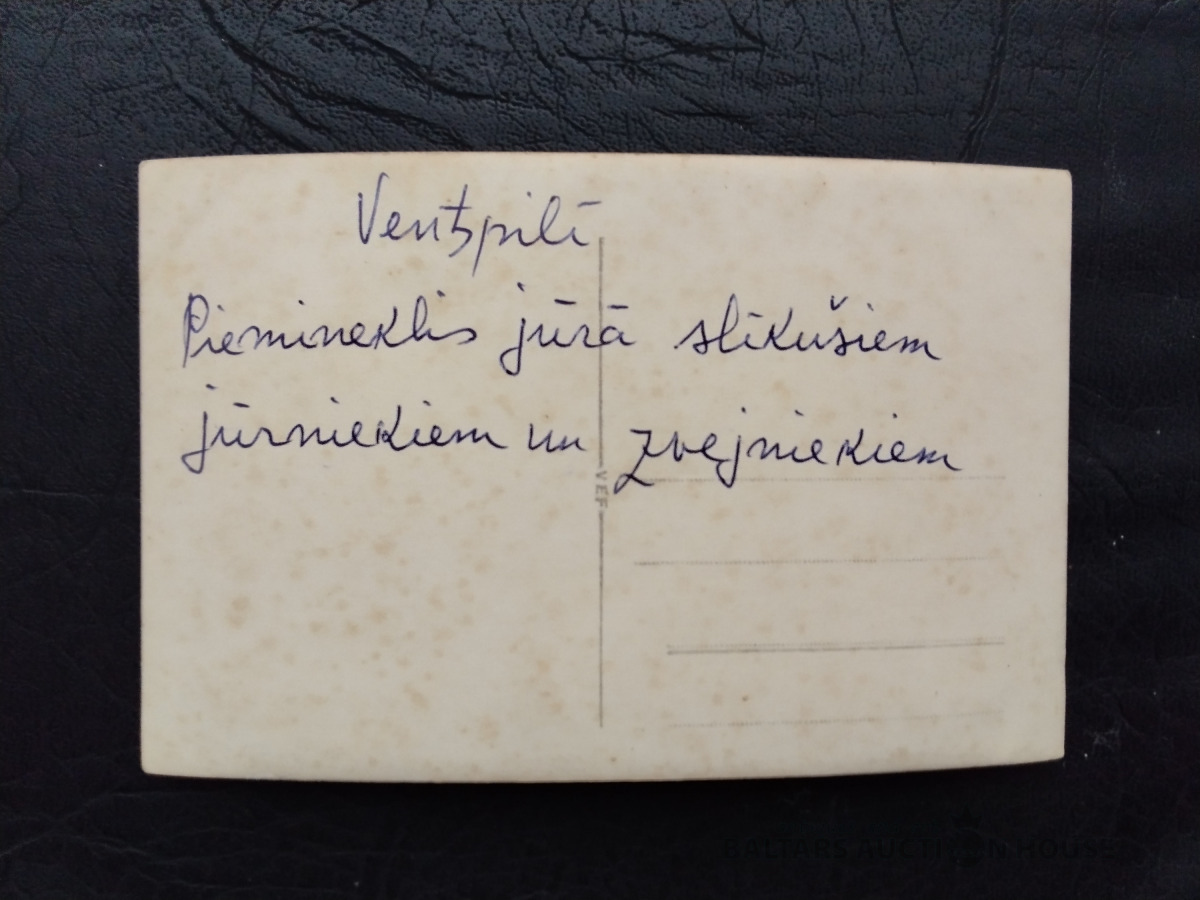 Ventspilī
Piemineklis jūrā slīkušiem
jūrniekiem un zvejniekiem
VEF
BALTARS AUCTION HOUSE